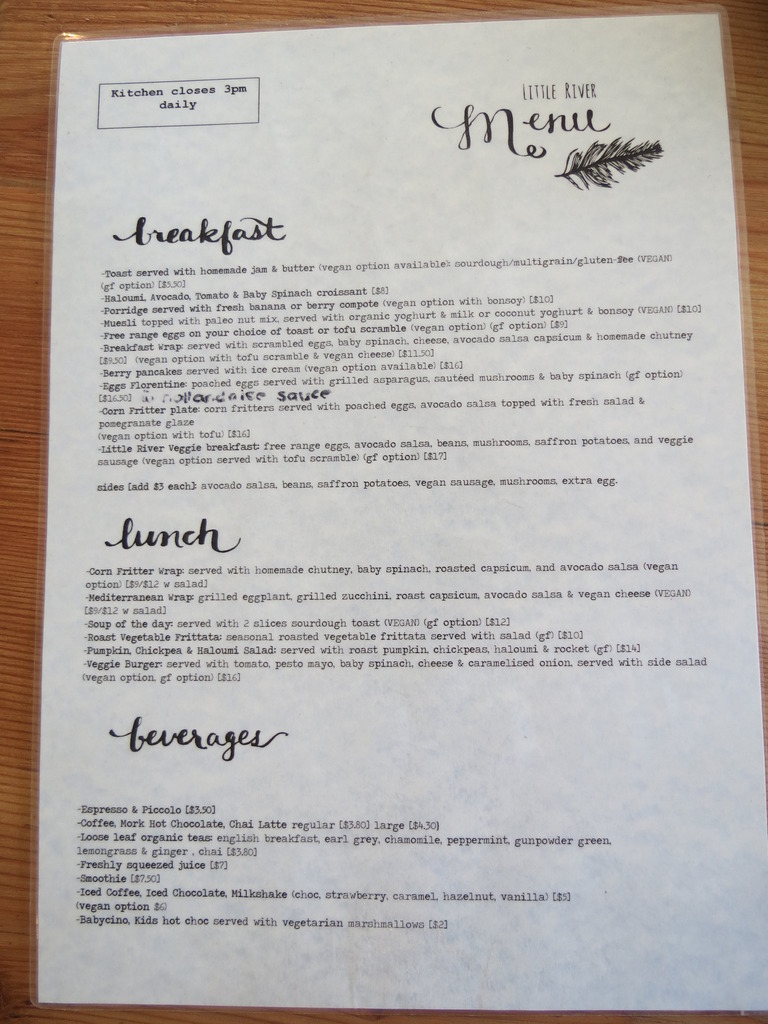 Kitchen closes 3pm
daily
LITTLE RIVER
Menu
breakfast
-Toast served with homemade jam & butter (vegan option available): sourdough/multigrain/gluten-free (VEGAN)
(gf option) [$5.50]
-Haloumi, Avocado, Tomato & Baby Spinach croissant [$8]
-Porridge served with fresh banana or berry compote (vegan option with bonsoy) [$10]
-Muesli topped with paleo nut mix, served with organic yoghurt & milk or coconut yoghurt & bonsoy (VEGAN) [$10]
-Free range eggs on your choice of toast or tofu scramble (vegan option) (gf option) [$9]
-Breakfast Wrap: served with scrambled eggs, baby spinach, cheese, avocado salsa capsicum & homemade chutney
[$9.50] (vegan option with tofu scramble & vegan cheese) [$11.50]
-Berry pancakes served with ice cream (vegan option available) [$16]
-Eggs Florentine: poached eggs served with grilled asparagus, sautéed mushrooms & baby spinach (gf option)
[$16.50] hollandaise sauce
-Corn Fritter plate: corn fritters served with poached eggs, avocado salsa topped with fresh salad &
pomegranate glaze
(vegan option with tofu) [$16]
-Little River Veggie breakfast: free range eggs, avocado salsa, beans, mushrooms, saffron potatoes, and veggie
sausage (vegan option served with tofu scramble) (gf option) [$17]
sides [add $3 each]: avocado salsa, beans, saffron potatoes, vegan sausage, mushrooms, extra egg.
lunch
-Corn Fritter Wrap: served with homemade chutney, baby spinach, roasted capsicum, and avocado salsa (vegan
option) [$9/$12 w salad]
-Mediterranean Wrap: grilled eggplant, grilled zucchini, roast capsicum, avocado salsa & vegan cheese (VEGAN)
[$9/$12 w salad]
-Soup of the day: served with 2 slices sourdough toast (VEGAN) (gf option) [$12]
-Roast Vegetable Frittata: seasonal roasted vegetable frittata served with salad (gf) [$10]
-Pumpkin, Chickpea & Haloumi Salad: served with roast pumpkin, chickpeas, haloumi & rocket (gf) [$14]
-Veggie Burger: served with tomato, pesto mayo, baby spinach, cheese & caramelised onion, served with side salad
(vegan option, gf option) [$16]
beverages
-Espresso & Piccolo [$3.50]
-Coffee, Mork Hot Chocolate, Chai Latte regular [$3.80] large [$4.30]
-Loose leaf organic teas: english breakfast, earl grey, chamomile, peppermint, gunpowder green,
lemongrass & ginger , chai [$3.80]
-Freshly squeezed juice [$7]
-Smoothie [$7.50]
-Iced Coffee, Iced Chocolate, Milkshake (choc, strawberry, caramel, hazelnut, vanilla) [$5]
(vegan option $6)
-Babycino, Kids hot choc served with vegetarian marshmallows [$2]